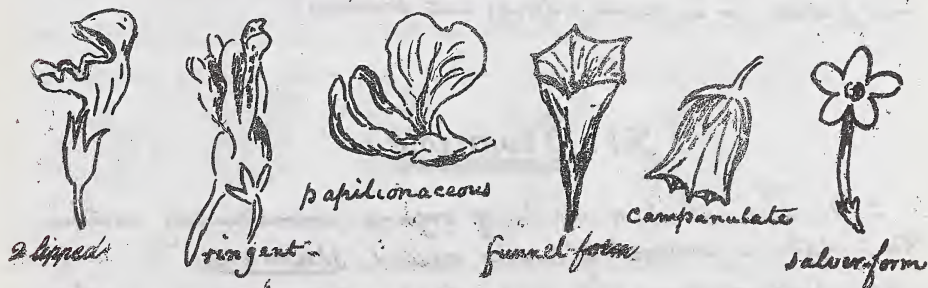 2 lipped
ringent
papilionaceous
funnel-form
campanulate
salver-form